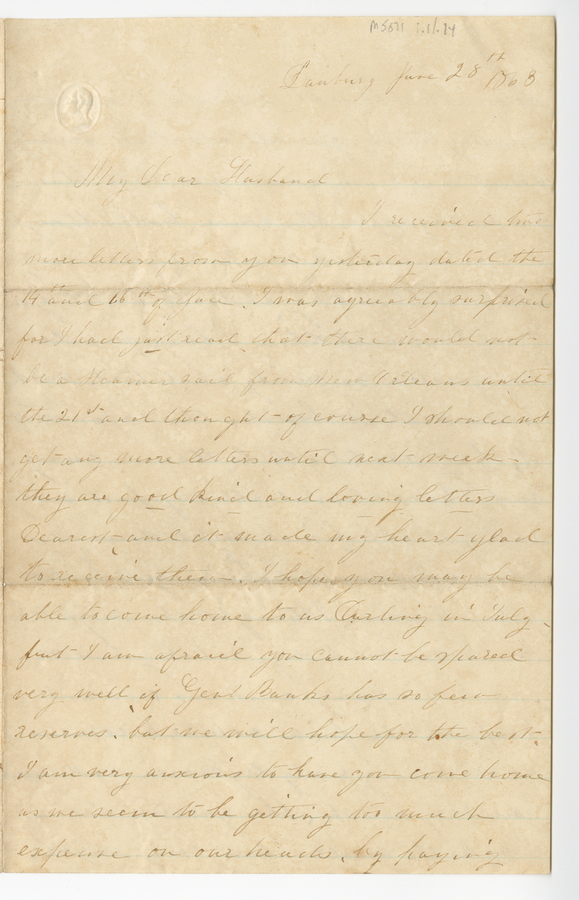 MS671 1.11.14
Danbury June 28th 1863
My Dear Husband
I received two
more letters from you yesterday dated the
14th and 16th of June. I was agreeably surprised
for I had just read that there would not
be a steamer sail from New Orleans until
the 21st and thought of course I should not
get any more letters until next week.
they are good kind and loving letters
Dearest and it made my heart glad
to receive them. I hope you may be
able to come home to us Darling in July.
but I am afraid you cannot be spared
very well if Genl Banks has so few
reserves. but we will hope for the best.
I am very anxious to have you come home
as we seem to be getting too much
expense on our heads, by paying